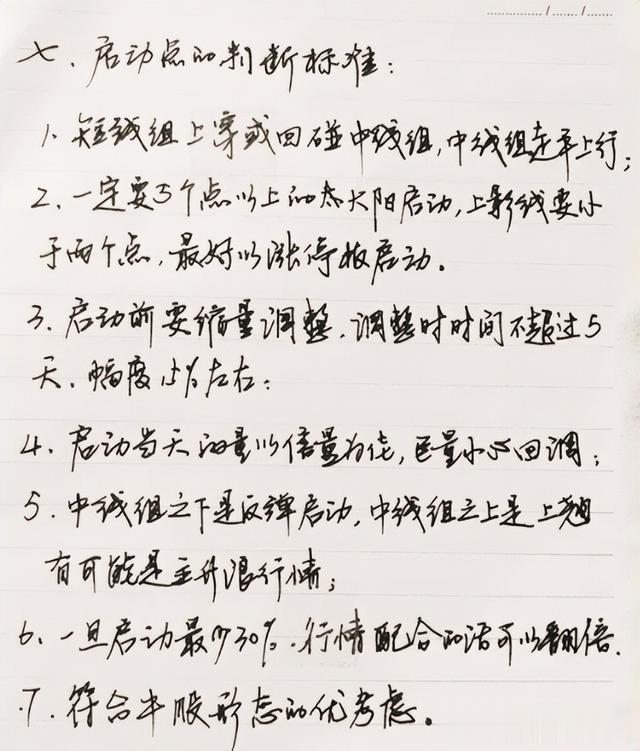 七、启动点的判断标准：
1、短线组上穿或回碰中线组，中线组走平上行；
2、一定要5个点以上的大阳启动，上影线要小
于两个点，最好以涨停板启动。
3、启动前要缩量调整、调整时时间不超过5
天、幅度15%左右；
4、启动当天的量以倍量为佳，巨量小心回调；
5、中线组之下是反弹启动，中线组之上是上翘
有可能是主升浪行情；
6、一旦启动最少30%、行情配合的话可以翻倍.
7、符合牛股形态的优考虑。